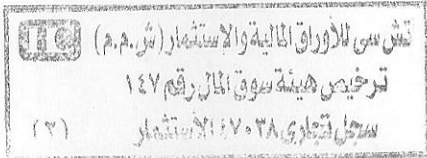 تش سى للأوراق المالية والإستثمار (ش.م.م)
ترخيص هيئة سوق المال رقم ١٤٧
سجل تجارى ٤٧٠٣٨ الاستثمار (٣)